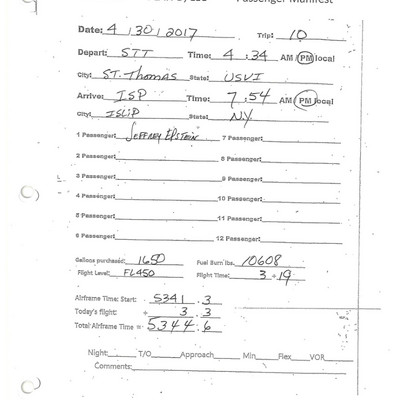 Passenger Manifest
Date: 4/30/2017 Trip: 10
Depart: STT Time: 4:34 AM/PM local
City: ST. Thomas State: USVI
Arrive: ISP Time: 7:54 AM/PM local
City: ISLIP State: NY
1 Passenger: Jeffrey Epstein 7 Passenger:
2 Passenger: 8 Passenger:
3 Passenger: 9 Passenger:
4 Passenger: 10 Passenger:
5 Passenger: 11 Passenger:
6 Passenger: 12 Passenger:
Gallons purchased: 1650 Fuel Burn lbs. 10608
Flight Level: FL450 Flight Time: 3+19
Airframe Time: Start: 5341.3
Today's flight: + 3.3
Total Airframe Time = 5344.6
Night: T/O Approach Min Flex VOR
Comments: